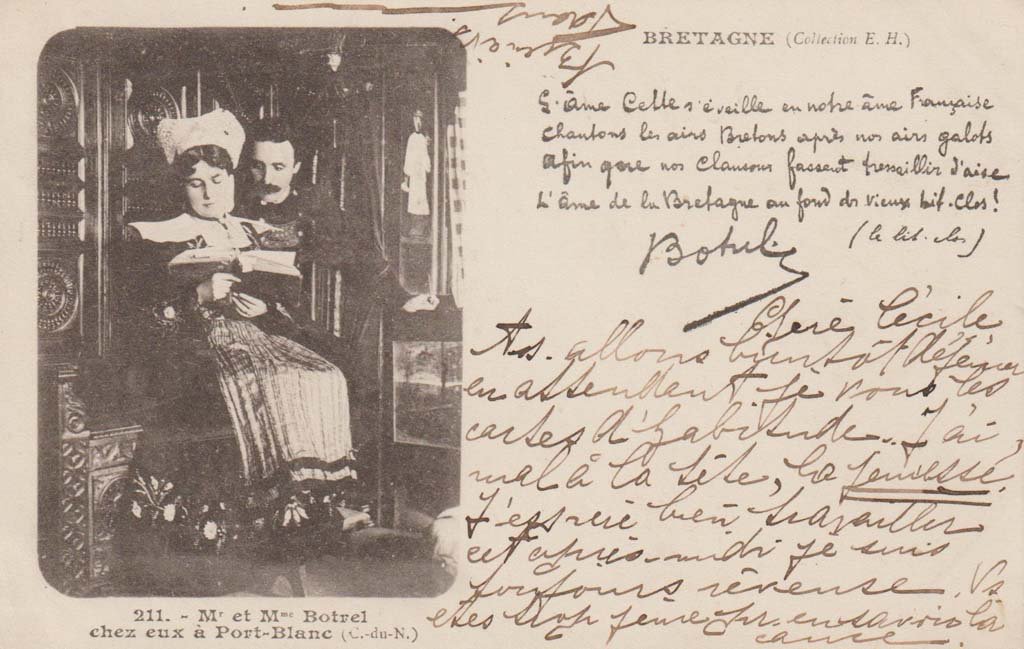 BRETAGNE (Collection E. H.)
L'âme Celte s'éveille en notre âme Française
Chantons les airs Bretons après nos airs galois
Afin que nos Chansons fassent tressaillir d'aise
L'âme de la Bretagne au fond des vieux Lit-Clos!
(le lit-clos)
Botrel
Chère Cécile
Ns. allons bientôt déjeuner
en attendent je vous les
cartes d'habitude. J'ai
mal à la tête, la jeunesse.
J'espère bien travailler
cet après-midi je suis
toujours rêveuse. Vs
êtes trop jeune pr. en savoir la
cause.
211. - Mr et Mme Botrel
chez eux à Port-Blanc (C.-du-N.)